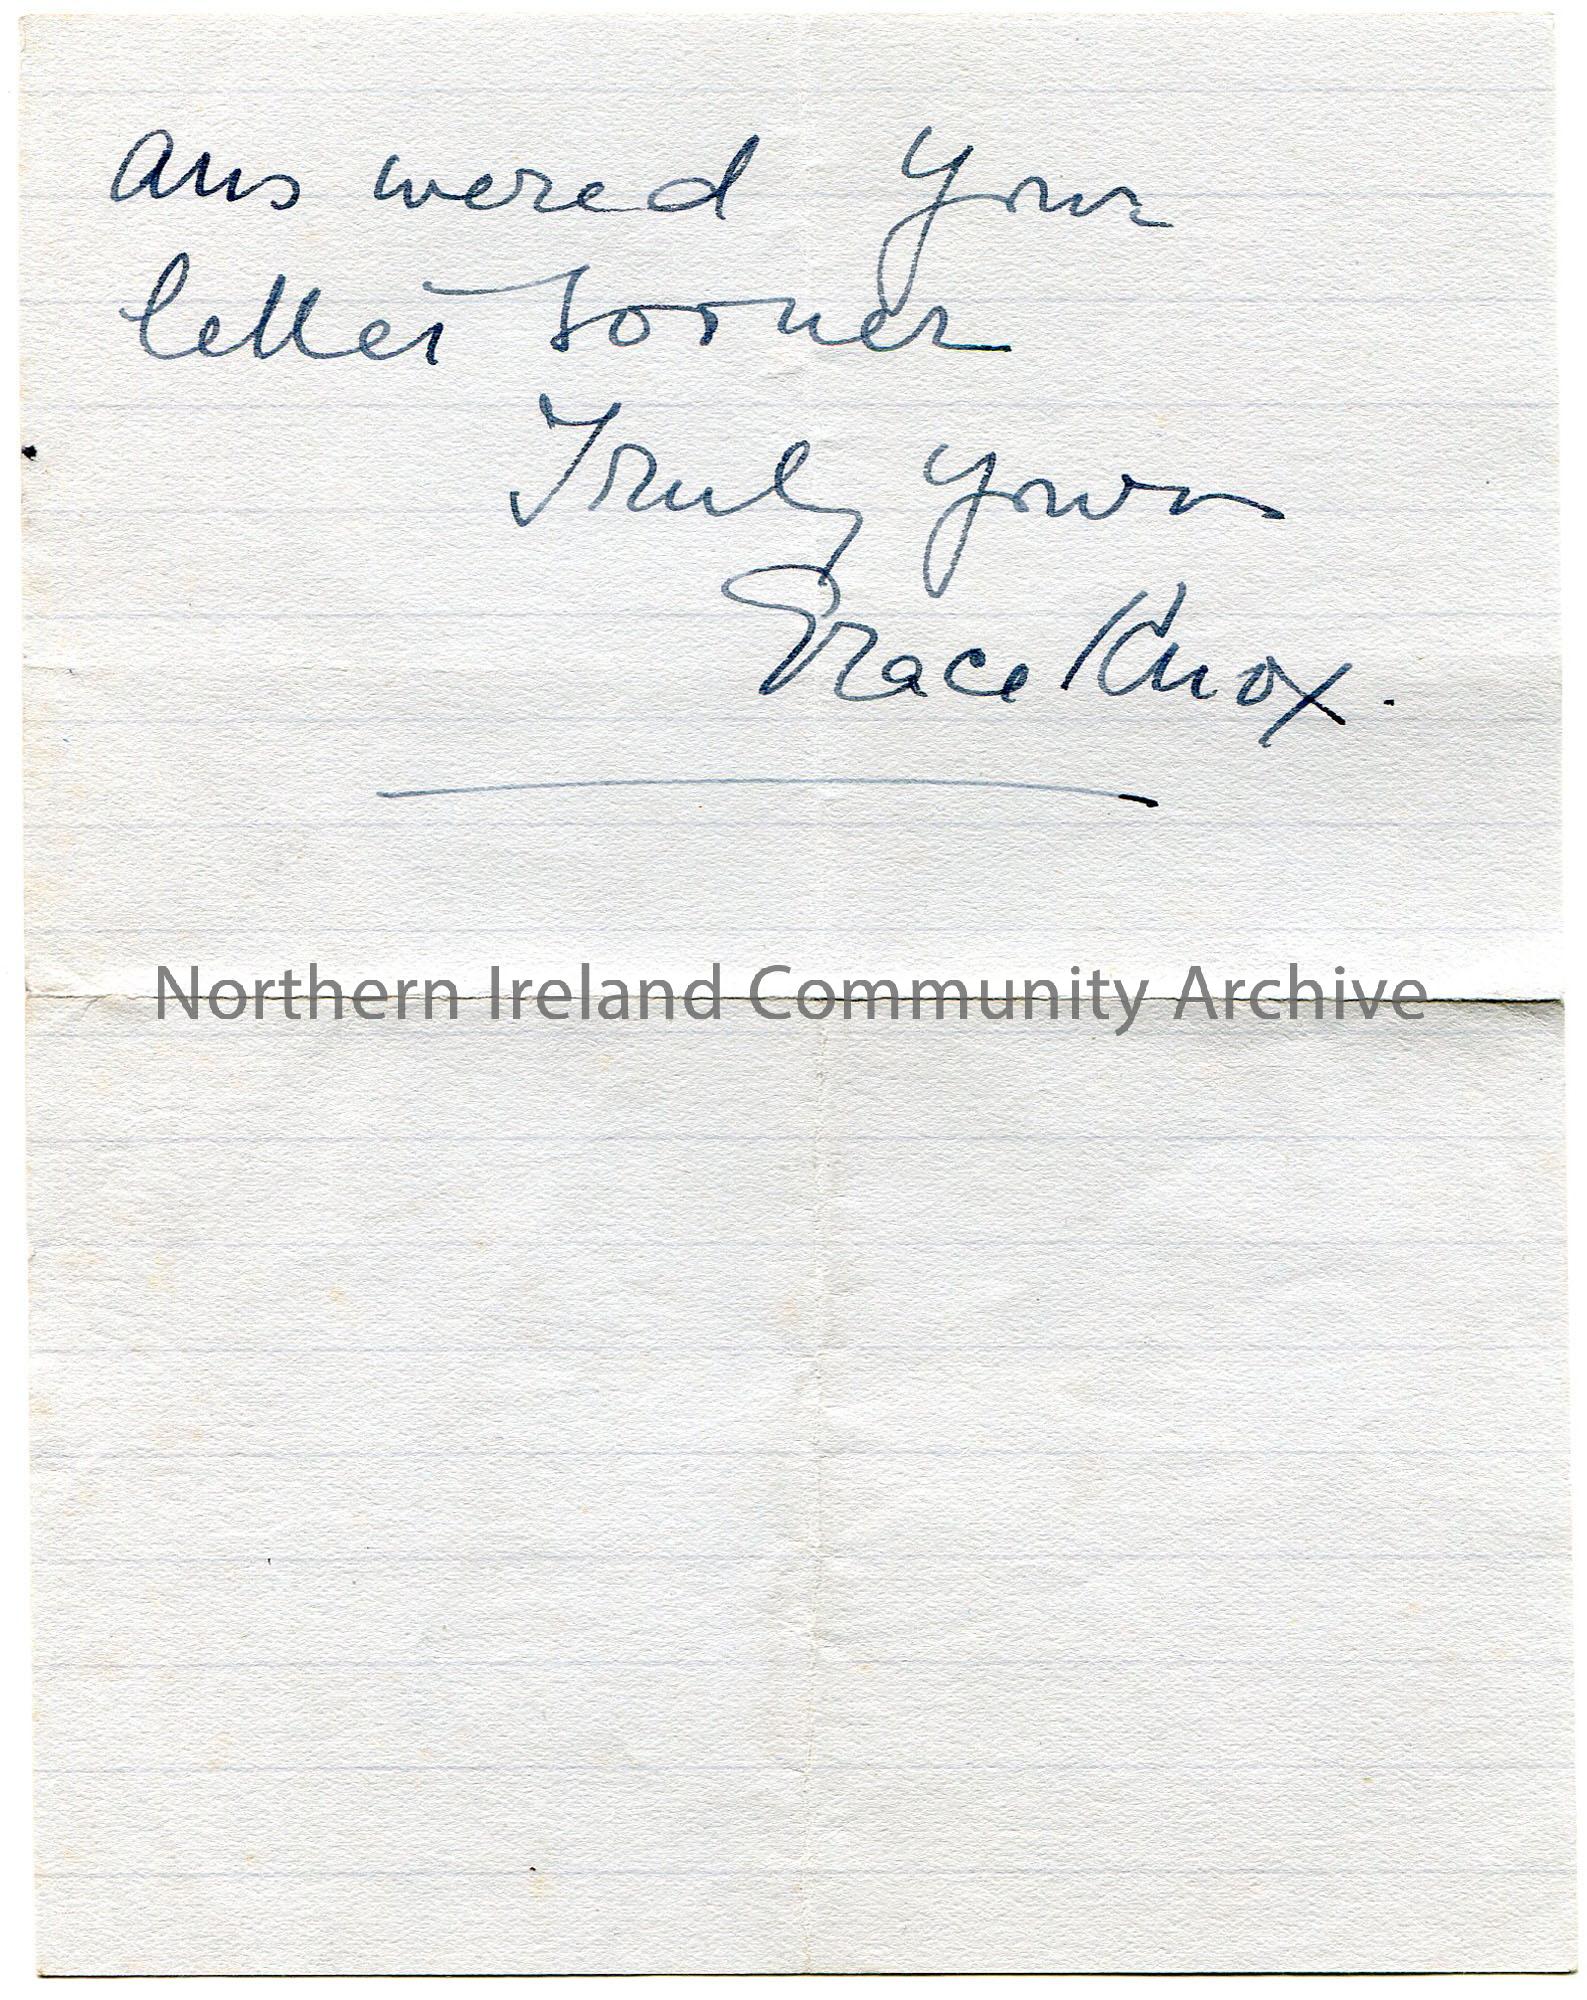 answered your
letter sooner
Truly yours
Grace Knox.
Northern Ireland Community Archive